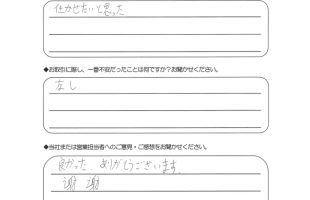 任かせたいと思った
◆お取引に際し、一番不安だったことは何ですか?お聞かせください。
なし
◆当社または営業担当者へのご意見・ご感想をお聞かせください。
良かった ありがとうございます
謝 謝